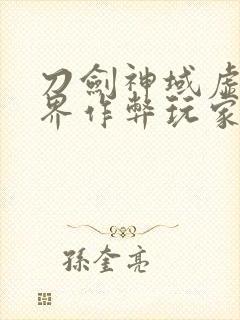 刀劍神域虛
界作弊玩家
孫奎亮